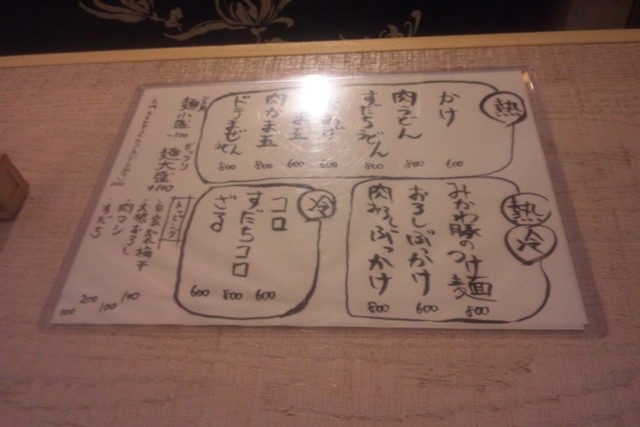 熱
かけ 600
肉うどん 800
すだちうどん 800
600
かま玉 600
肉かま玉 800
ドラまぜうどん 800
熱 冷
みかわ豚のつけ麺 800
おろしぶっかけ 600
肉おろしぶっかけ 800
冷
コロ 600
すだちコロ 800
ざる 600
麺小盛 -100
ガッツリ
麺大盛 +100
トッピング
自家製梅干 100
大根おろし 100
肉マシ 200
すだち 100